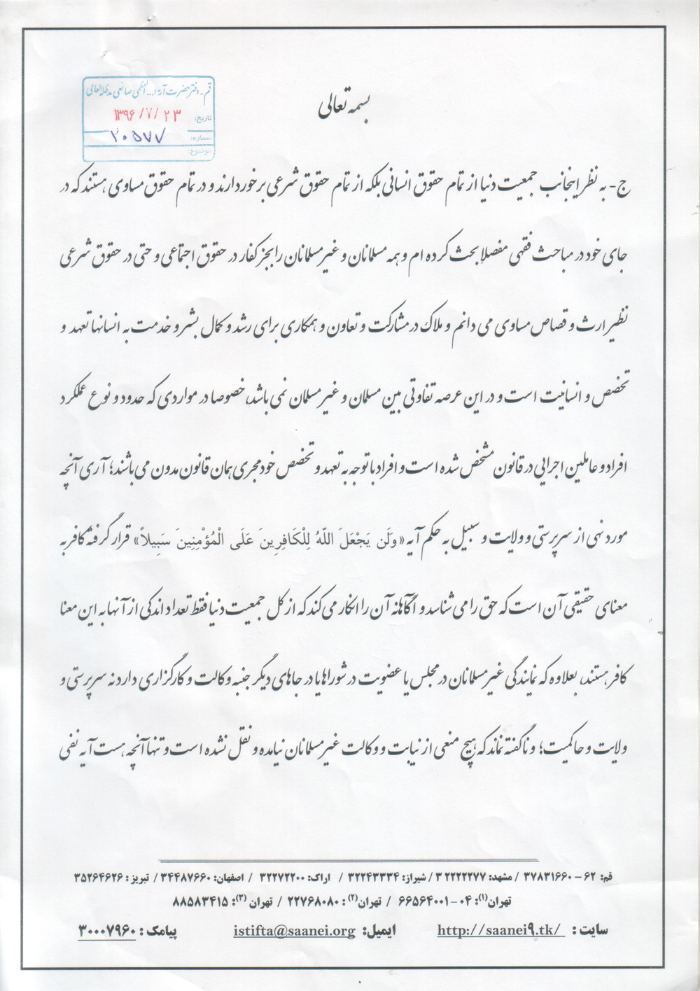 بسمه تعالی
قم - دفتر حضرت آیة ا... العظمی صانعی مدظله العالی
تاریخ: ۱۳۹۶/۷/۲۳
شماره: ۲۰۵۷۷
موضوع:
ج- به نظر اینجانب جمعیت دنیا از تمام حقوق انسانی بلکه از تمام حقوق شرعی برخوردارند و در تمام حقوق مساوی هستند که در
جای خود در مباحث فقهی مفصلا بحث کرده ام و همه مسلمانان و غیرمسلمانان را بجز کفار در حقوق اجتماعی و حتی در حقوق شرعی
نظیر ارث و قصاص مساوی می دانم و ملاک در مشارکت و تعاون و همکاری برای رشد و کمال بشر و خدمت به انسانها تعهد و
تخصص و انسانیت است و در این عرصه تفاوتی بین مسلمان و غیر مسلمان نمی باشد، خصوصا در مواردی که حدود و نوع عملکرد
افراد و عاملین اجرایی در قانون مشخص شده است و افراد با توجه به تعهد و تخصص خود مجری همان قانون مدون می باشند؛ آری آنچه
مورد نهی از سرپرستی و ولایت و سبیل به حکم آیه «ولَن يَجْعَلَ اللّهُ لِلْكَافِرِينَ عَلَى الْمُؤْمِنِينَ سَبِيلاً» قرار گرفته کافر به
معنای حقیقی آن است که حق را می شناسد و آگاهانه آن را انکار می کند که از کل جمعیت دنیا فقط تعداد اندکی از آنها به این معنا
کافر هستند، بعلاوه که نمایندگی غیرمسلمانان در مجلس یا عضویت در شوراها یا در جاهای دیگر جنبه وکالت و کارگزاری دارد نه سرپرستی و
ولایت و حاکمیت؛ و ناگفته نماند که هیچ منعی از نیابت و وکالت غیرمسلمانان نیامده و نقل نشده است و تنها آنچه هست آیه نفی
قم: ۶۲ - ۳۷۸۳۱۶۶۰ / مشهد: ۳۲۲۲۲۲۷۷ / شیراز: ۳۲۲۴۳۳۳۴ / اراک: ۳۲۲۷۲۲۰۰ / اصفهان: ۳۴۴۸۷۶۶۰ / تبریز : ۳۵۲۶۴۶۲۶
تهران(۱): ۰۴ - ۶۶۵۶۴۰۰۱ / تهران(۲) : ۲۲۷۶۸۰۸۰ / تهران (۳): ۸۸۵۸۳۴۱۵
سایت : http://saanei9.tk/ ایمیل: istifta@saanei.org پیامک : ۳۰۰۰۷۹۶۰